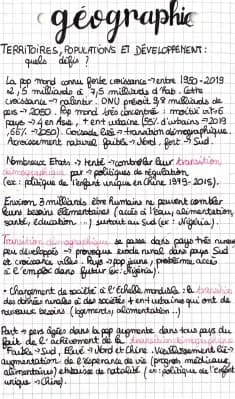 géographie
TERRITOIRES, POPULATIONS ET DÉVELOPPEMENT :
quels défis ?
La pop mond connu forte croissance → entre 1950-2019
2,5 milliards à 7,5 milliards d'hab. Cette
croissance → ralentir. ONU prévoit 9,8 milliards de
pers → 2050. Pop mond très concentré : moitié vit → 6
pays → 4 en Asie, + en + urbaine (55% d'urbains → 2019
, 66% → 2050). Croissance liée → transition démographique.
Accroissement naturel faible → Nord, fort → Sud.
Nombreux Etats → tenté → contrôler leur transition
démographique par → politiques de régulation
(ex : politique de l'enfant unique en Chine 1979-2015).
Environ 3 milliards être humains ne peuvent combler
leurs besoins élémentaires (accès à l'eau, alimentation,
santé, éducation...) surtout au Sud (ex : Nigéria).
Transition démographique se passe dans pays très
peu développés → provoque exode rural dans pays Sud
et croissance villes. Pays → pop jeune, problème accès
à l'emploi dans futur (ex : Nigéria).
• Changement de société à l'échelle mondiale : la transition
des données rurales à des sociétés + en + urbaines qui ont de
nouveaux besoins (logements, alimentation..)
Part → pers âgées dans la pop augmente dans tous pays du
fait de l'achèvement de la transition démographique
Faible → Sud, Elevé → Nord et Chine. Vieillissement lié →
augmentation de l'espérance de vie (progrès médicaux,
alimentaires) et baisse de natalité (ex : politique de l'enfant
unique → Chine).